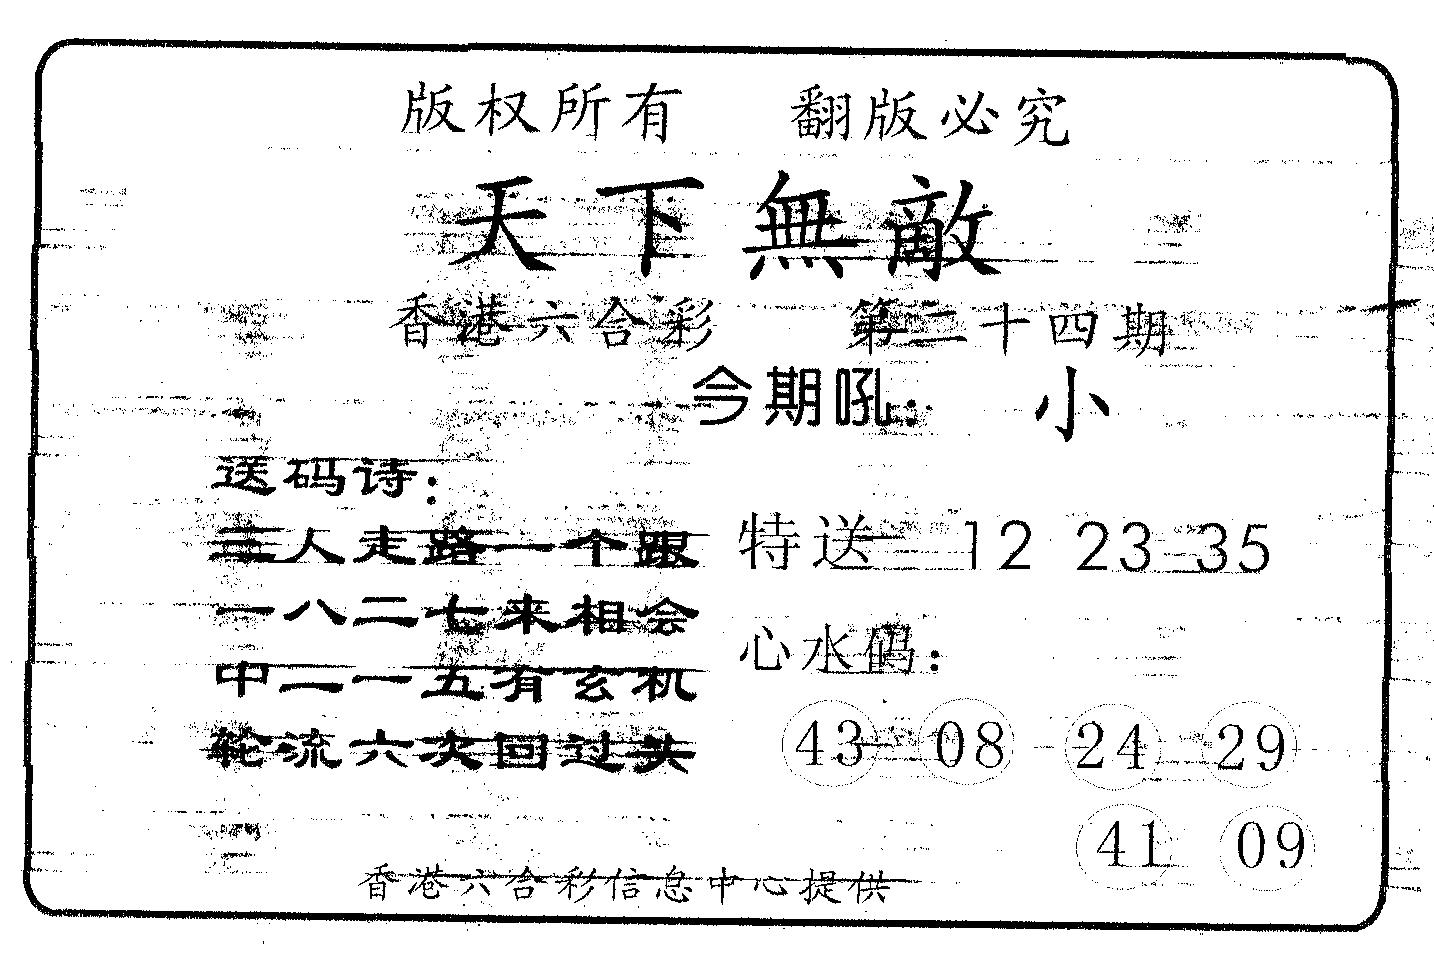 版权所有 翻版必究
天下無敵
香港六合彩 第二十四期
今期吼: 小
送码诗:
三人走路一个跟
一八二七来相会
中二一五有玄机
轮流六次回过头
特送 12 23 35
心水码:
43 08 24 29
41 09
香港六合彩信息中心提供